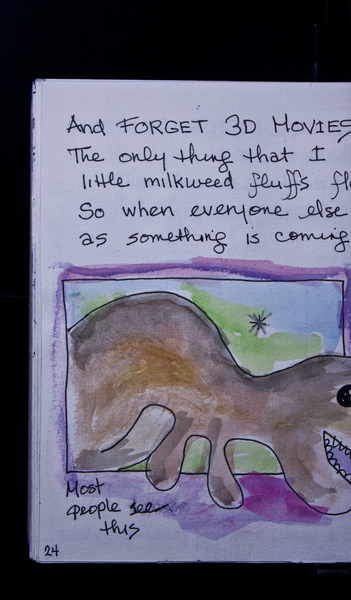 And FORGET 3D MOVIES
The only thing that I
little milkweed fluffs
So when everyone else
as something is coming
Most
people see
this
24